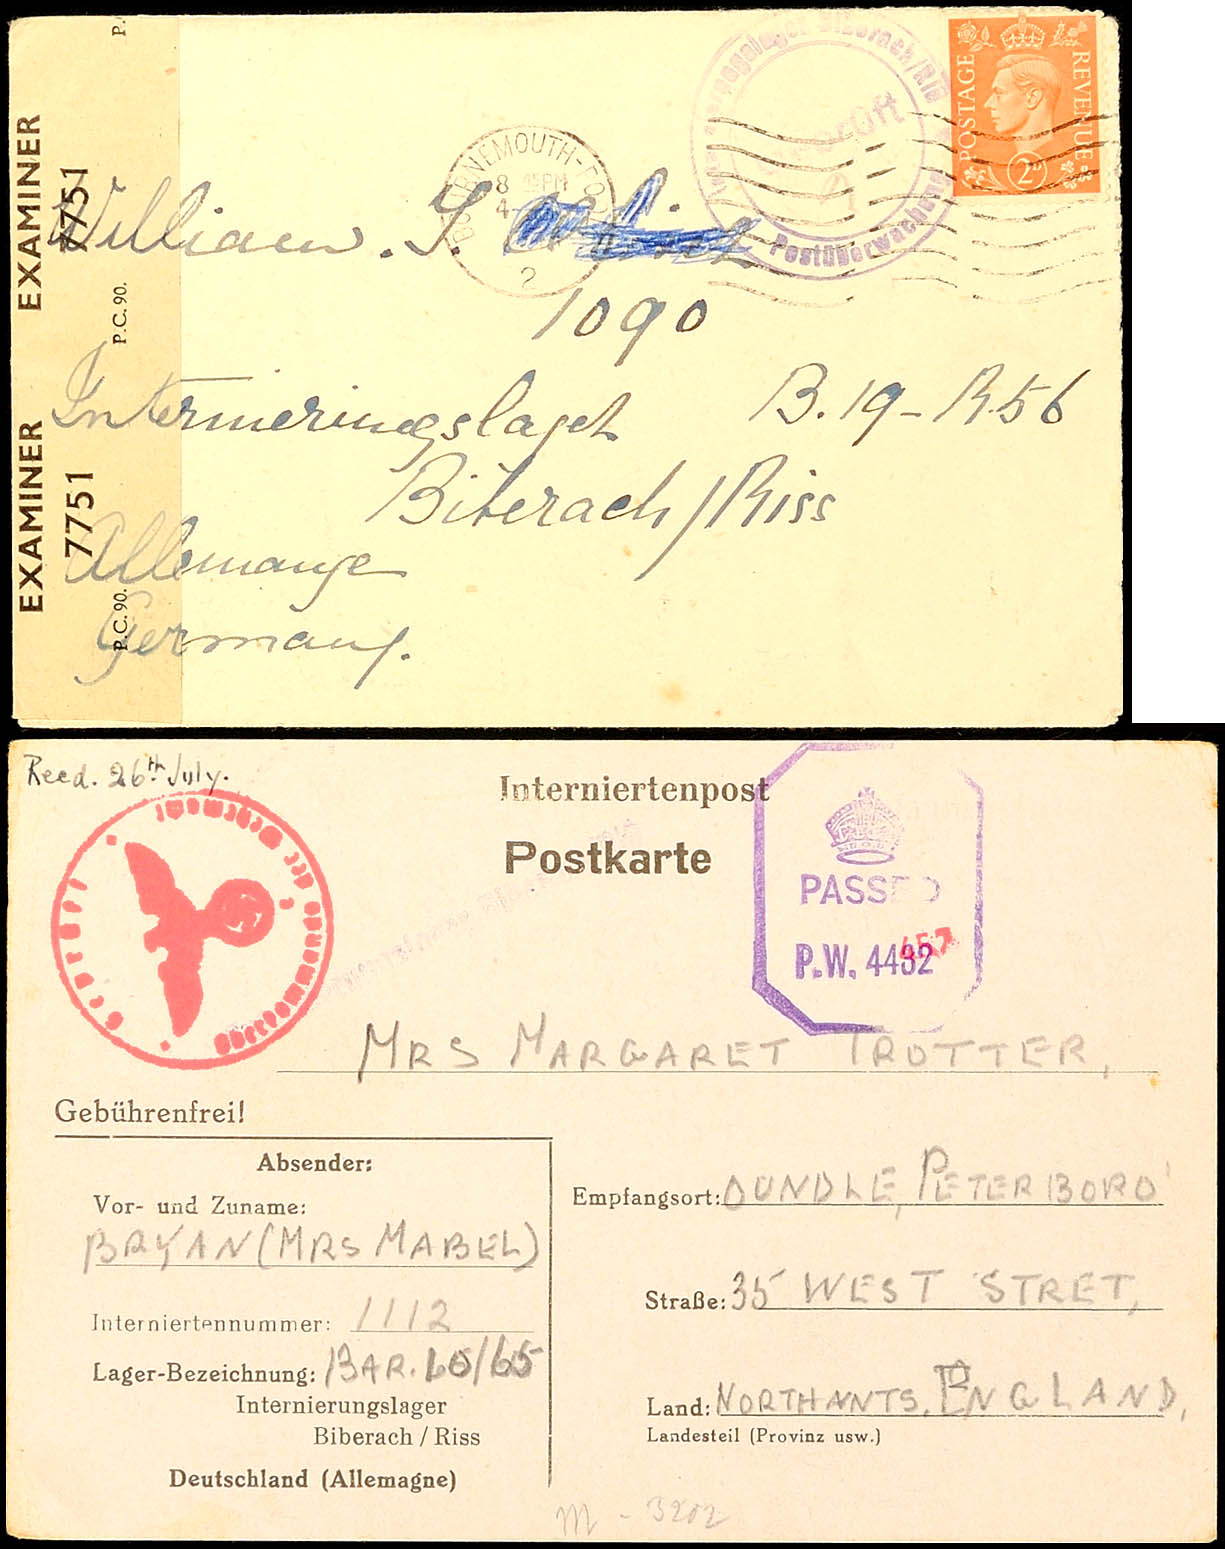 EXAMINER 7751
EXAMINER 7751
P.C. 90.
P.C. 90.
BOURNEMOUTH-PO
8 15 PM
4
2
Biberach/Riß
Geprüft
4
Postüberwachung
POSTAGE REVENUE
2D
William. J.
1090
Interneringslaget B. 19 - R.56
Biberach/Riss
Allemange
Germany.
Recd. 26th July.
Interniertenpost
Postkarte
Geprüft
Oberkommando der Wehrmacht
PASSED
P.W. 4432
457
MRS MARGARET TROTTER,
Gebührenfrei!
Absender:
Vor- und Zuname:
BRYAN (MRS MABEL)
Interniertennummer: 1112
Lager-Bezeichnung: BAR. 65/65
Internierungslager
Biberach / Riss
Deutschland (Allemagne)
Empfangsort: OUNDLE, PETERBORO'
Straße: 35 WEST STRET,
Land: NORTHANTS. ENGLAND,
Landesteil (Provinz usw.)
M - 3202